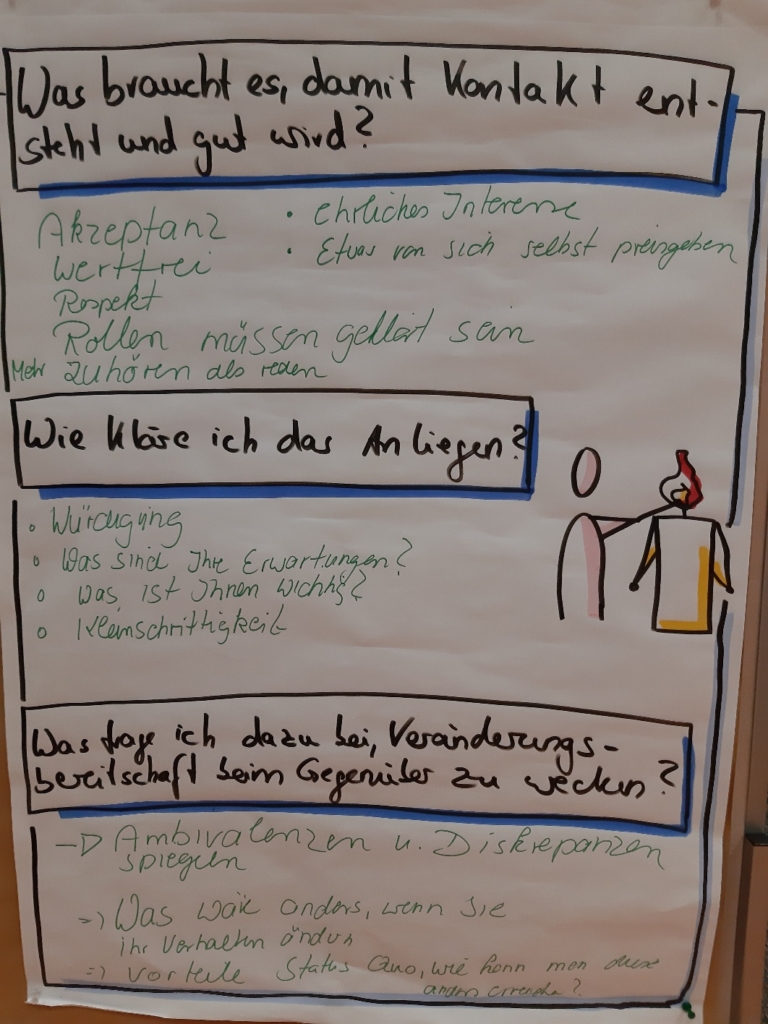 Was braucht es, damit Kontakt ent-
steht und gut wird?
Akzeptanz
wertfrei
Respekt
Rollen müssen geklärt sein
Mehr zuhören als reden
• ehrliches Interesse
• Etwas von sich selbst preisgeben
Wie kläre ich das Anliegen?
• Würdigung
• Was sind Ihre Erwartungen?
• Was ist Ihnen wichtig?
• Kleinschrittigkeit
Was trage ich dazu bei, Veränderungs-
bereitschaft beim Gegenüber zu wecken?
→ Ambivalenzen u. Diskrepanzen
spiegeln
⇒ Was wäre anders, wenn Sie
ihr Verhalten ändern
⇒ Vorteile Status Quo, wie kann man diese
anders erreichen?